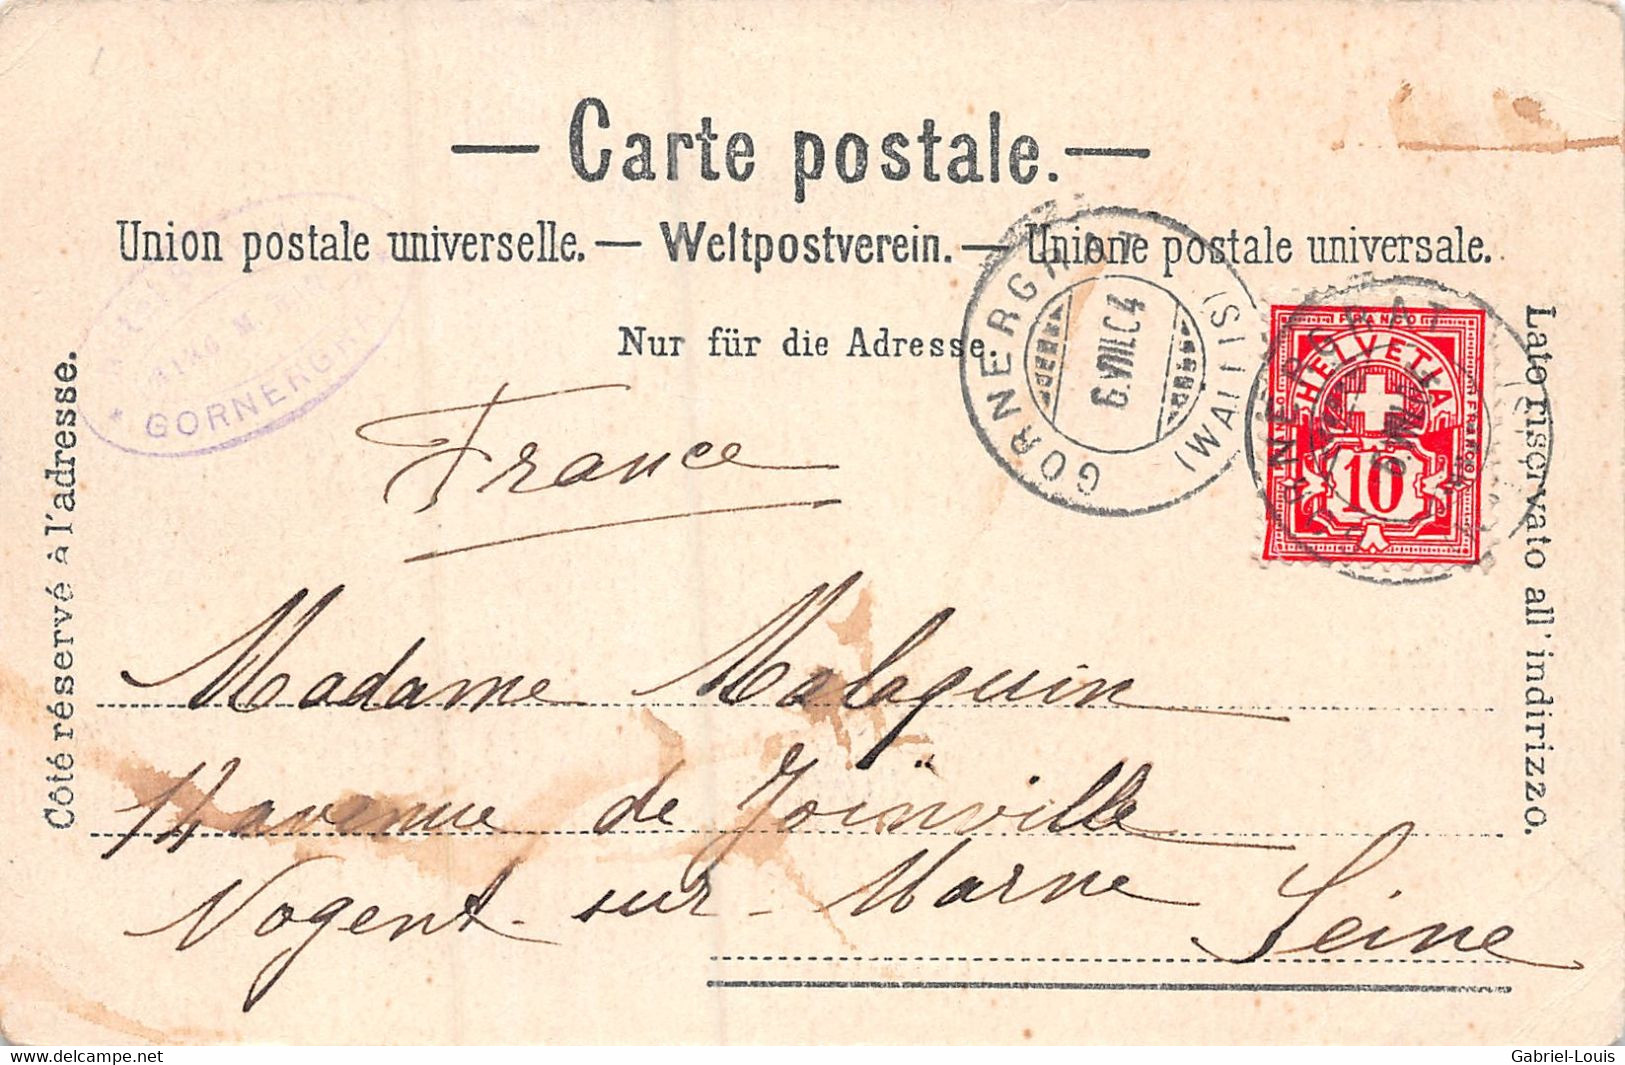 — Carte postale. —
Union postale universelle. — Weltpostverein. — Unione postale universale.
Nur für die Adresse.
Côté réservé à l'adresse.
Lato riservato all' indirizzo.
GORNERGR
GORNERGRAT (WALLIS)
6.VIII.04
FRANCO
HELVETIA
10
France
Madame Malaquin
14 avenue de Joinville
Nogent-sur-Marne Seine
www.delcampe.net
Gabriel-Louis